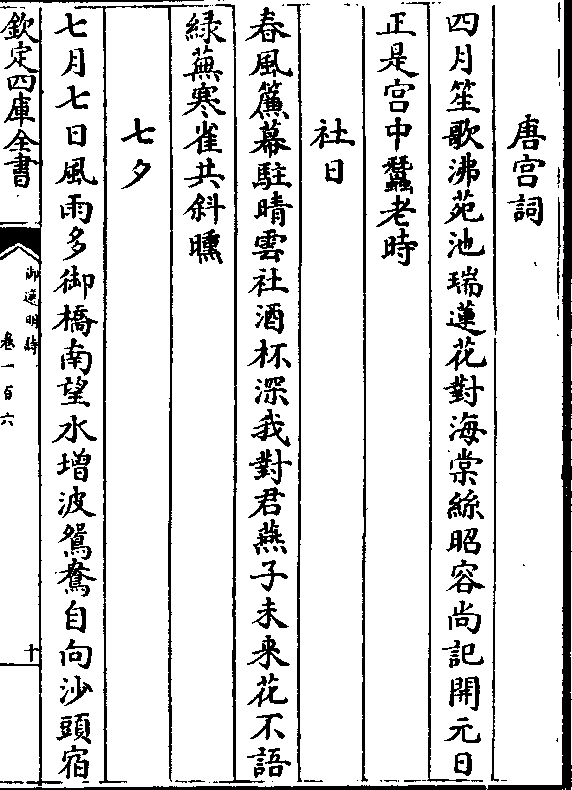 唐宫詞
四月笙歌沸苑池瑞蓮花對海棠絲昭容尚記開元日
正是宫中蠶老時
社日
春風簾幕駐晴雲社酒杯深我對君燕子未来花不語
緑蕪寒雀共斜曛
七夕
七月七日風雨多御橋南望水增波鴛鴦自向沙頭宿
欽定四庫全書
御選明詩
卷一百六
十